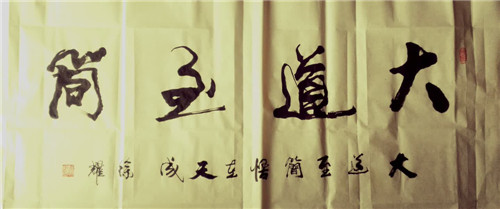 大道至简
大道至简悟在天成 徐耀